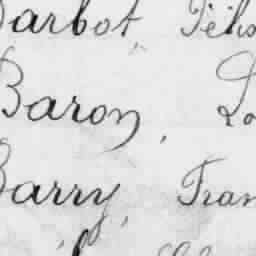 Barbot, Féli
Baron, Lo
Barry, Fran